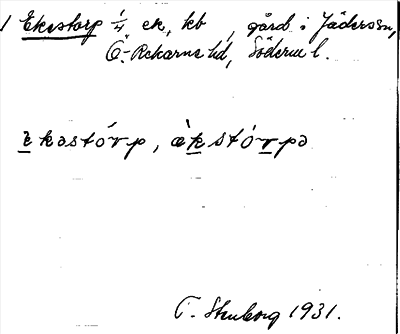 1 Ekestorp 1/4 ek, kb, gård i Jäders sn,
Ö-Rekarne hd, Söderm l.
èkəstórp, àkstórpə
T. Stenborg 1931.